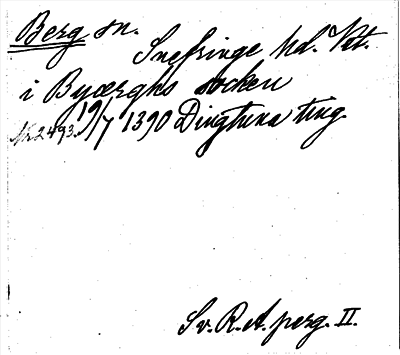 Berg sn.
Snefringe hd. Vstm.
i Byærghs socken
Nr 2493. 19/7 1390 Dingtuna ting.
Sv. R. A. perg. II.